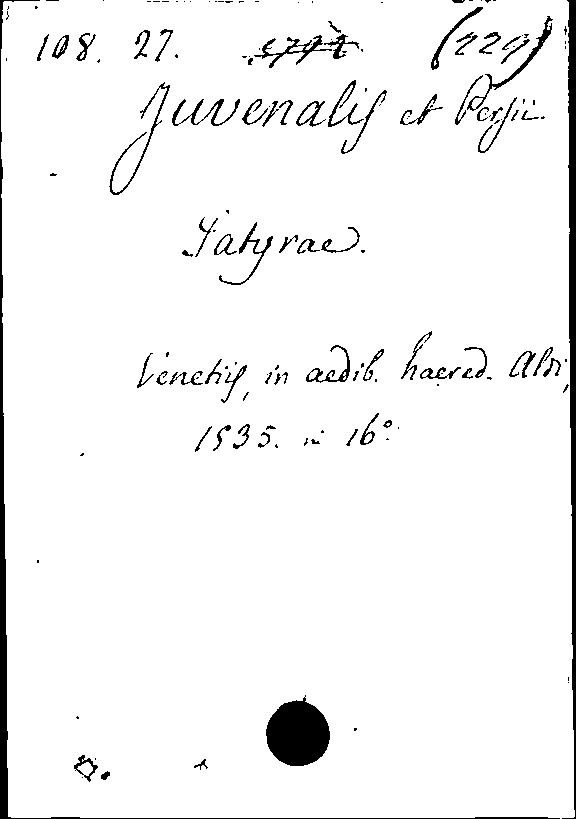 108. 27. (229)
Juvenalis et Persii.
Satyrae.
Venetiis, in aedib. haered. Aldi,
1535. in 16°.